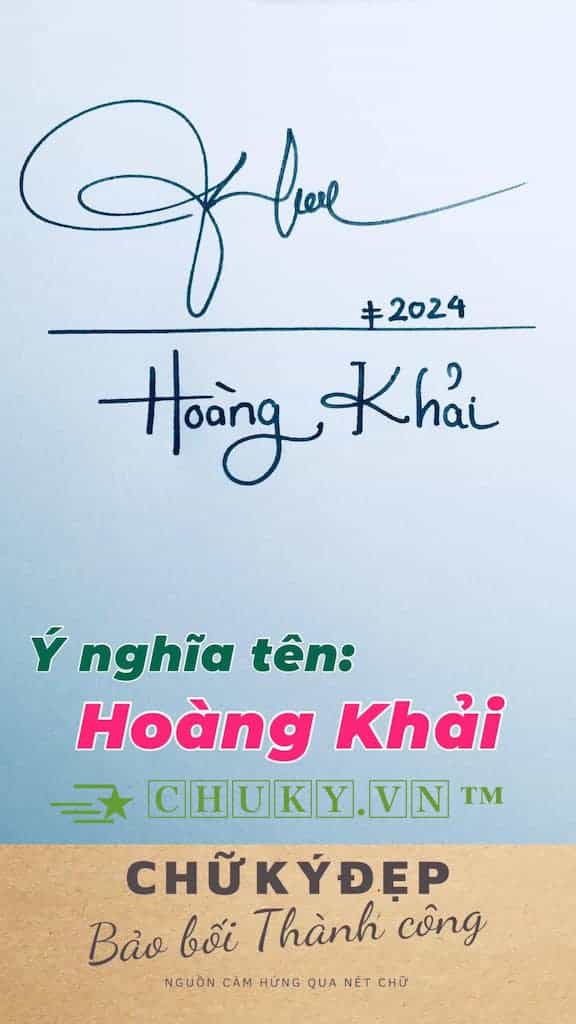 ‡2024
Hoàng Khải
Ý nghĩa tên:
Hoàng Khải
CHUKY.VN™
CHỮKÝĐẸP
Bảo bối Thành công
NGUỒN CẢM HỨNG QUA NÉT CHỮ